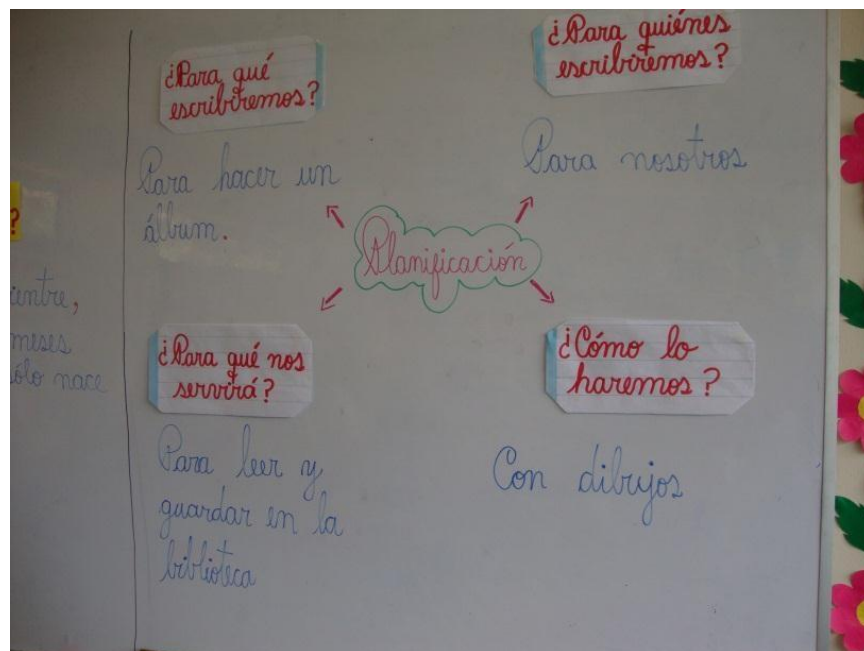 ¿Para qué
escribiremos?
Para hacer un
álbum.
¿Para quiénes
escribiremos?
Para nosotros
Planificación
¿Para qué nos
servirá?
Para leer y
guardar en la
biblioteca
¿Cómo lo
haremos?
Con dibujos
?
meses
sólo nace